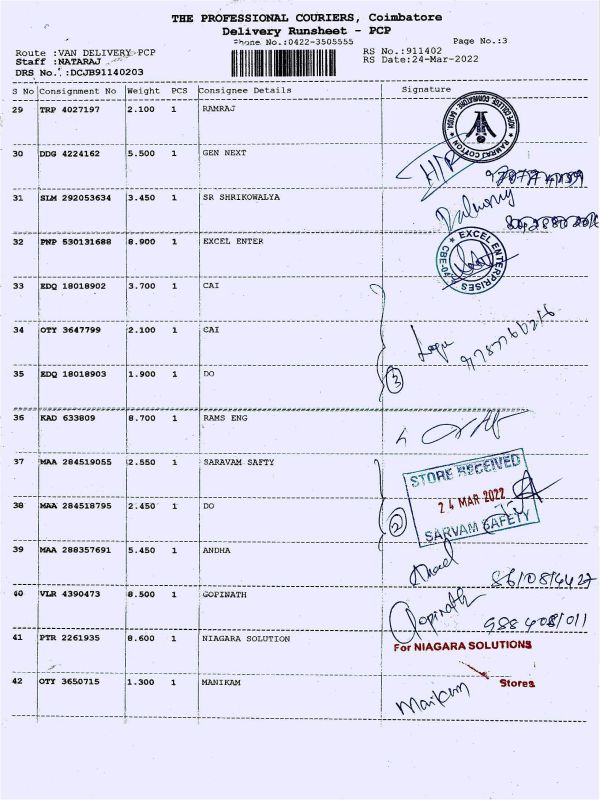 THE PROFESSIONAL COURIERS, Coimbatore
Delivery Runsheet - PCP
Phone No.:0422-3505555
Page No.:3
Route :VAN DELIVERY PCP
RS No.:911402
Staff :NATARAJ
RS Date:24-Mar-2022
DRS No. :DCJB91140203
S No Consignment No Weight PCS Consignee Details Signature
29 TRP 4027197 2.100 1 RAMRAJ
RAMRAJ COTTON
30 DDG 4224162 5.500 1 GEN NEXT
31 SLM 292053634 3.450 1 SR SHRIKOWALYA
32 PNP 530131688 8.900 1 EXCEL ENTER
EXCEL ENTERPRISES
CBE-04
33 EDQ 18018902 3.700 1 CAI
34 OTY 3647799 2.100 1 CAI
35 EDQ 18018903 1.900 1 DO
3
36 KAD 633809 8.700 1 RAMS ENG
37 MAA 284519055 2.550 1 SARAVAM SAFTY
STORE RECEIVED
24 MAR 2022
SARVAM SAFETY
38 MAA 284518795 2.450 1 DO
2
39 MAA 288357691 5.450 1 ANDHA
8610814427
40 VLR 4390473 8.500 1 GOPINATH
Gopinath
9884081011
41 PTR 2261935 8.600 1 NIAGARA SOLUTION
For NIAGARA SOLUTIONS
Stores
42 OTY 3650715 1.300 1 MANIKAM
Manikam